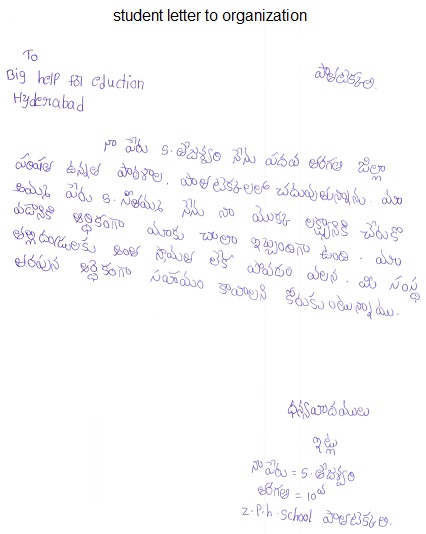 student letter to organization
To
Big help for eduction
Hyderabad
పాతటెక్కలి.
నా పేరు S. తేజశ్విం నేను పదవ తరగతి జిల్లా
పరిషత్ ఉన్నత పాఠశాల, పాతటెక్కలిలో చదువుతున్నాను. మా
అమ్మ పేరు S. సీతమ్మ నేను నా మొక్క లక్ష్యానికి చేరుకో
వడానికి ఆర్థికంగా మాకు చాలా ఇబ్బందిగా ఉంది. మా
తల్లిదండ్రులకు అంత స్తోమత లేక పోవడం వలన. మీ సంస్థ
తరపున ఆర్థికంగా సహాయం కావాలని కోరుకుంటున్నాము.
ధన్యవాదములు
ఇట్లు
నా పేరు = S. తేజశ్విం
తరగతి = 10వ
Z.P.h.School పాతటెక్కలి.